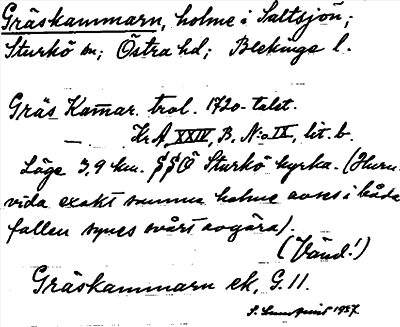 Gräskammarn, holme i Saltsjön;
Sturkö sn; Östra hd; Blekinge l.
Gräs Kamar. trol. 1720-talet.
— KrA XXIV, B, N:o IX, lit. b.
Läge 3,9 km. SSÖ Sturkö kyrka. (Huru-
vida exakt samma holme avses i båda
fallen synes svårt avgöra).
(Vänd!)
Gräskammarn ek, G. 11.
S. Lundqvist 1957.